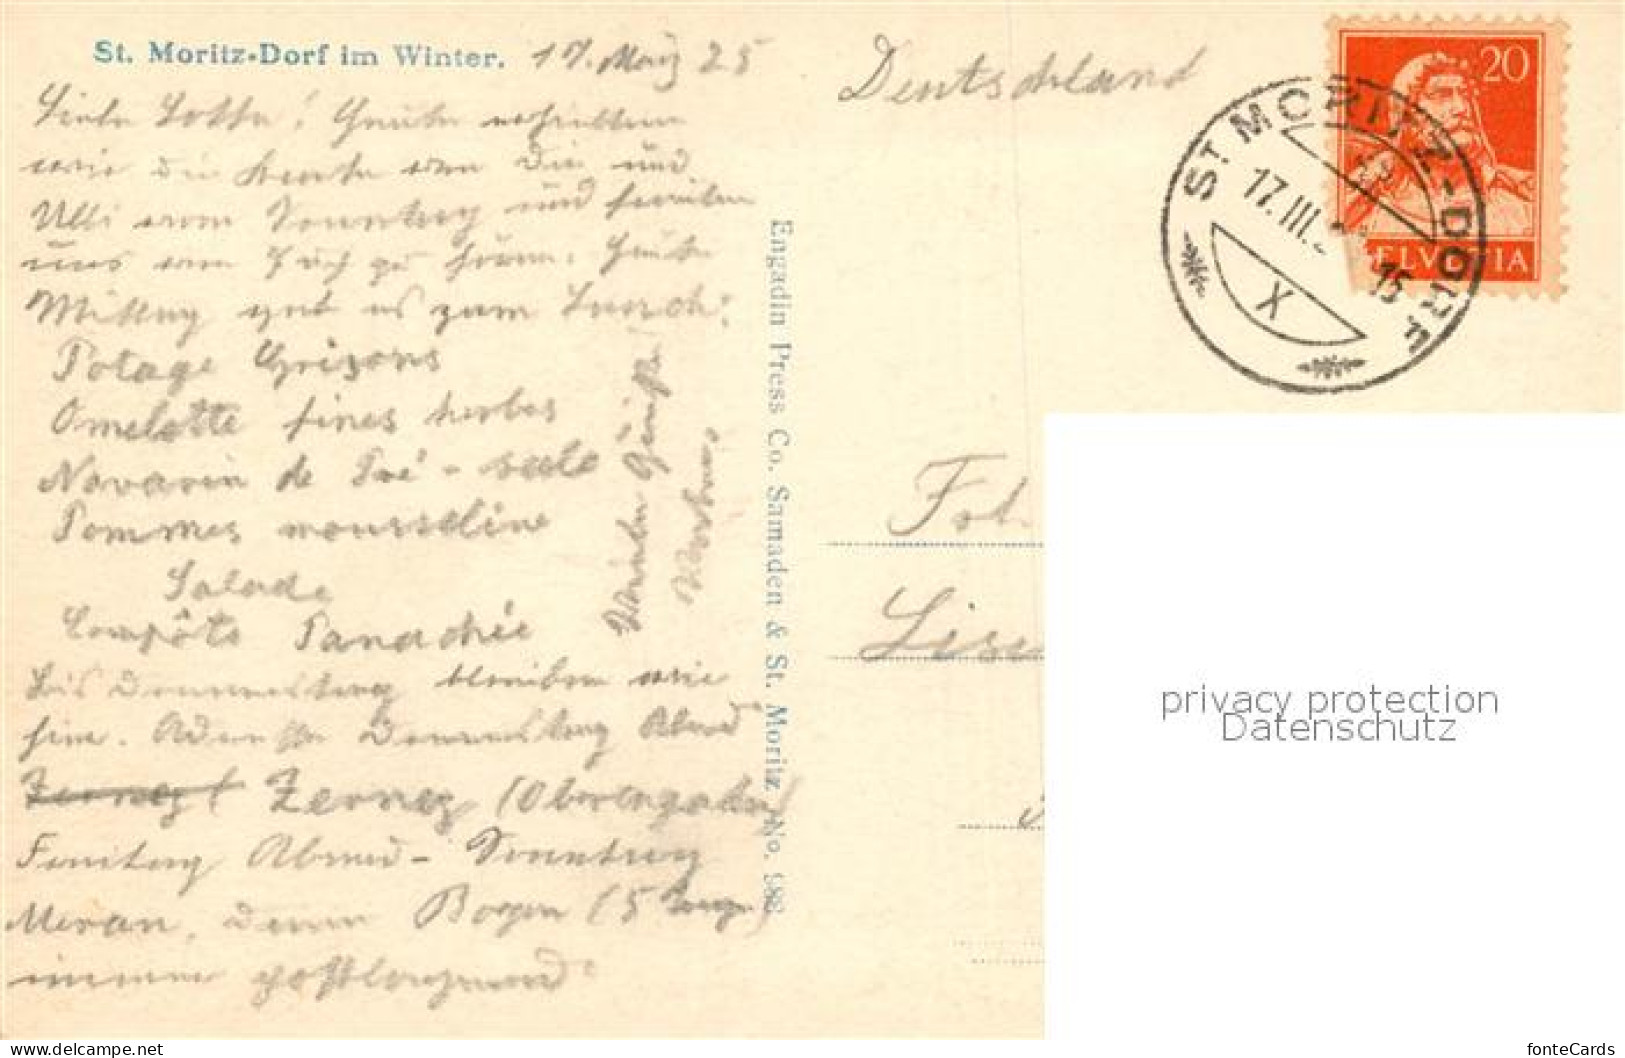 St. Moritz-Dorf im Winter. 17. März 25
Liebe Lotte! Heute erhielten
wir die Karte von Dir und
Ulli vom Sonntag und freuten
uns von Euch zu hören. Heute
Mittag gab es zum Lunch:
Potage Grisons
Omelette fines herbes
Navarin de Pré-salé
Pommes mousseline
Salade
Compôte Panachée
Bis Donnerstag bleiben wir
hier. Adresse Donnerstag Abend
Zernez (Oberengadin)
Freitag Abend - Sonntag
Meran, dann Bozen (5 Tage)
immer postlagernd.
Grüße
Engadin Press Co. Samaden & St. Moritz No. 988
Deutschland
20
HELVETIA
ST. MORITZ-DORF
17.III.
X
15
Frl.
Lise
privacy protection
Datenschutz
fonteCards
www.delcampe.net